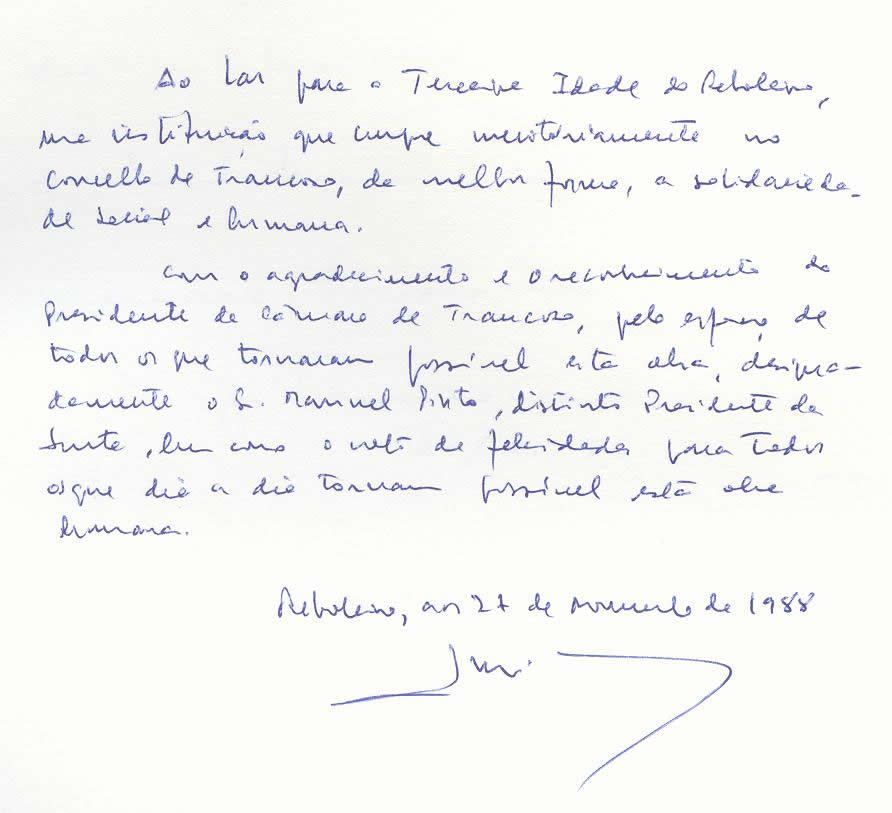 Ao Lar para a Terceira Idade do Reboleiro,
uma instituição que cumpre meritoriamente no
Concelho de Trancoso, da melhor forma, a solidarieda-
de social e humana.
Com o agradecimento e o reconhecimento do
Presidente da Câmara de Trancoso, pelo esforço de
todos os que tornaram possível esta obra, designa-
damente o Sr. Manuel Pinto, distinto Presidente da
Junta, bem como o voto de felicidades para todos
os que dia a dia tornam possível esta obra
humana.
Reboleiro, aos 27 de Novembro de 1988